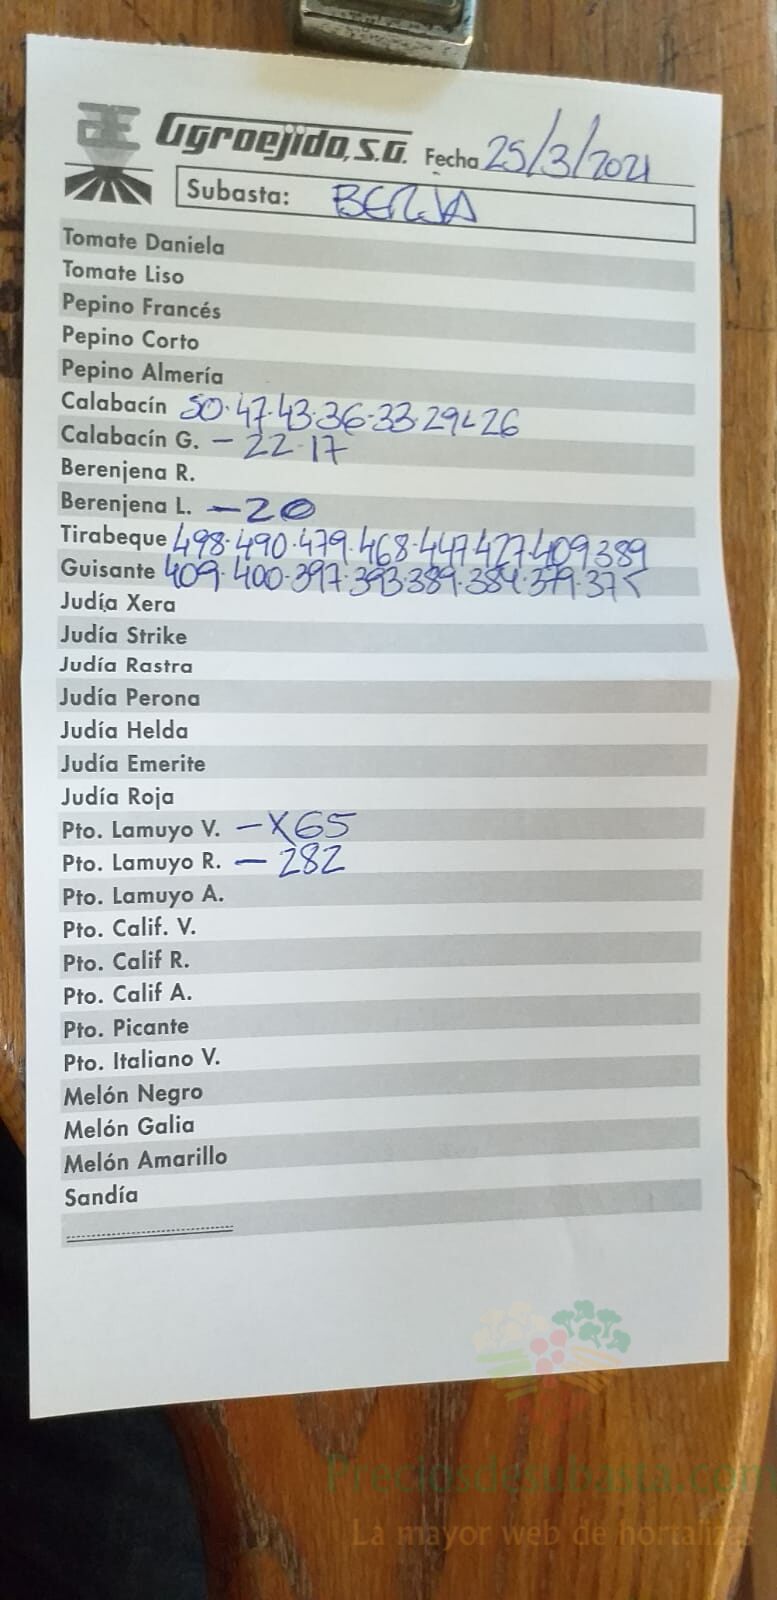 AE Agroejido, S.A. Fecha 25/3/2021
Subasta: BERJA
Tomate Daniela
Tomate Liso
Pepino Francés
Pepino Corto
Pepino Almería
Calabacín 50.47.43.36.33.29-26
Calabacín G. - 22.17
Berenjena R.
Berenjena L. - 20
Tirabeque 498.490.479.468.447.427.409.389
Guisante 409.400.397.393.389.384.379.375
Judía Xera
Judía Strike
Judía Rastra
Judía Perona
Judía Helda
Judía Emerite
Judía Roja
Pto. Lamuyo V. - X65
Pto. Lamuyo R. - 282
Pto. Lamuyo A.
Pto. Calif. V.
Pto. Calif R.
Pto. Calif A.
Pto. Picante
Pto. Italiano V.
Melón Negro
Melón Galia
Melón Amarillo
Sandía
Preciosdesubasta.com
La mayor web de hortalizas